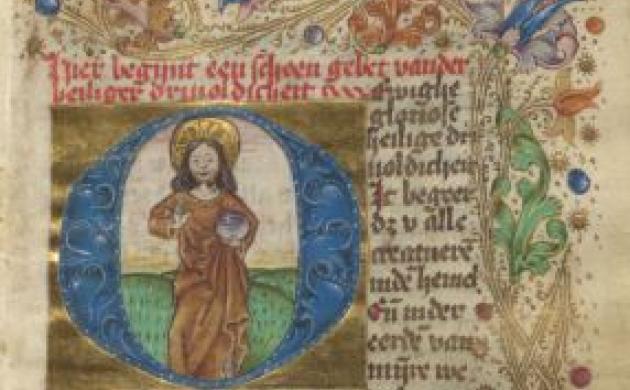 Hier begÿnt een schoen gebet vander
heiliger drivoldicheit
O ewighe
glorïose
heilige dri
uoldicheit
Ic begeer
dz v alle
creatuerē
indē hemel
En in der
eerdē van
mijre we